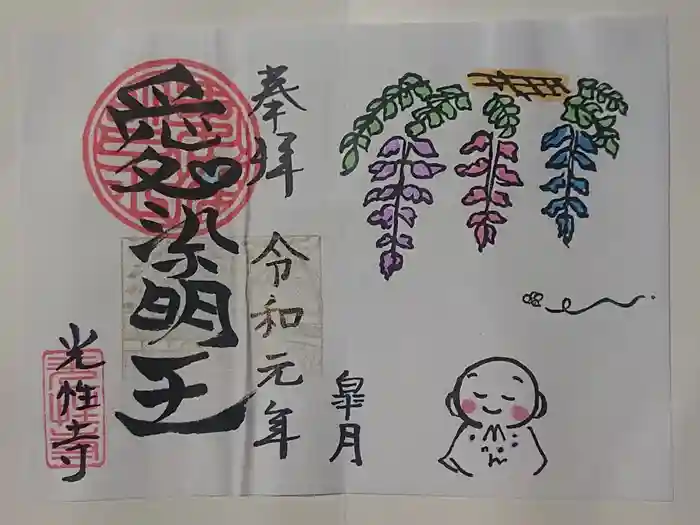 奉拝
令和元年
皐月
愛染明王
光性寺